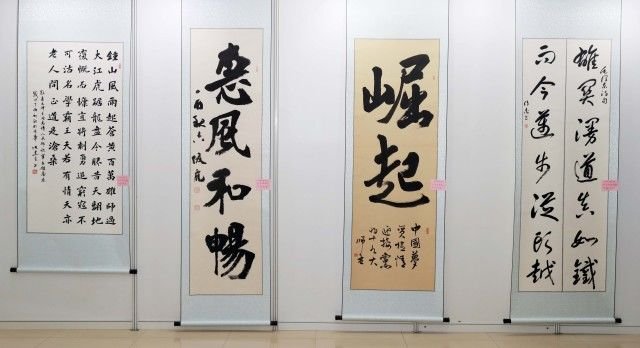 鍾山風雨起蒼黃百萬雄師過
大江虎踞龍盤今勝昔天翻地
覆慨而慷宜將剩勇追窮寇不
可沽名學霸王天若有情天亦
老人間正道是滄桑
惠風和暢
崛起
中國夢
迎接黨
的十九大
雄關漫道真如鐵
而今邁步從頭越